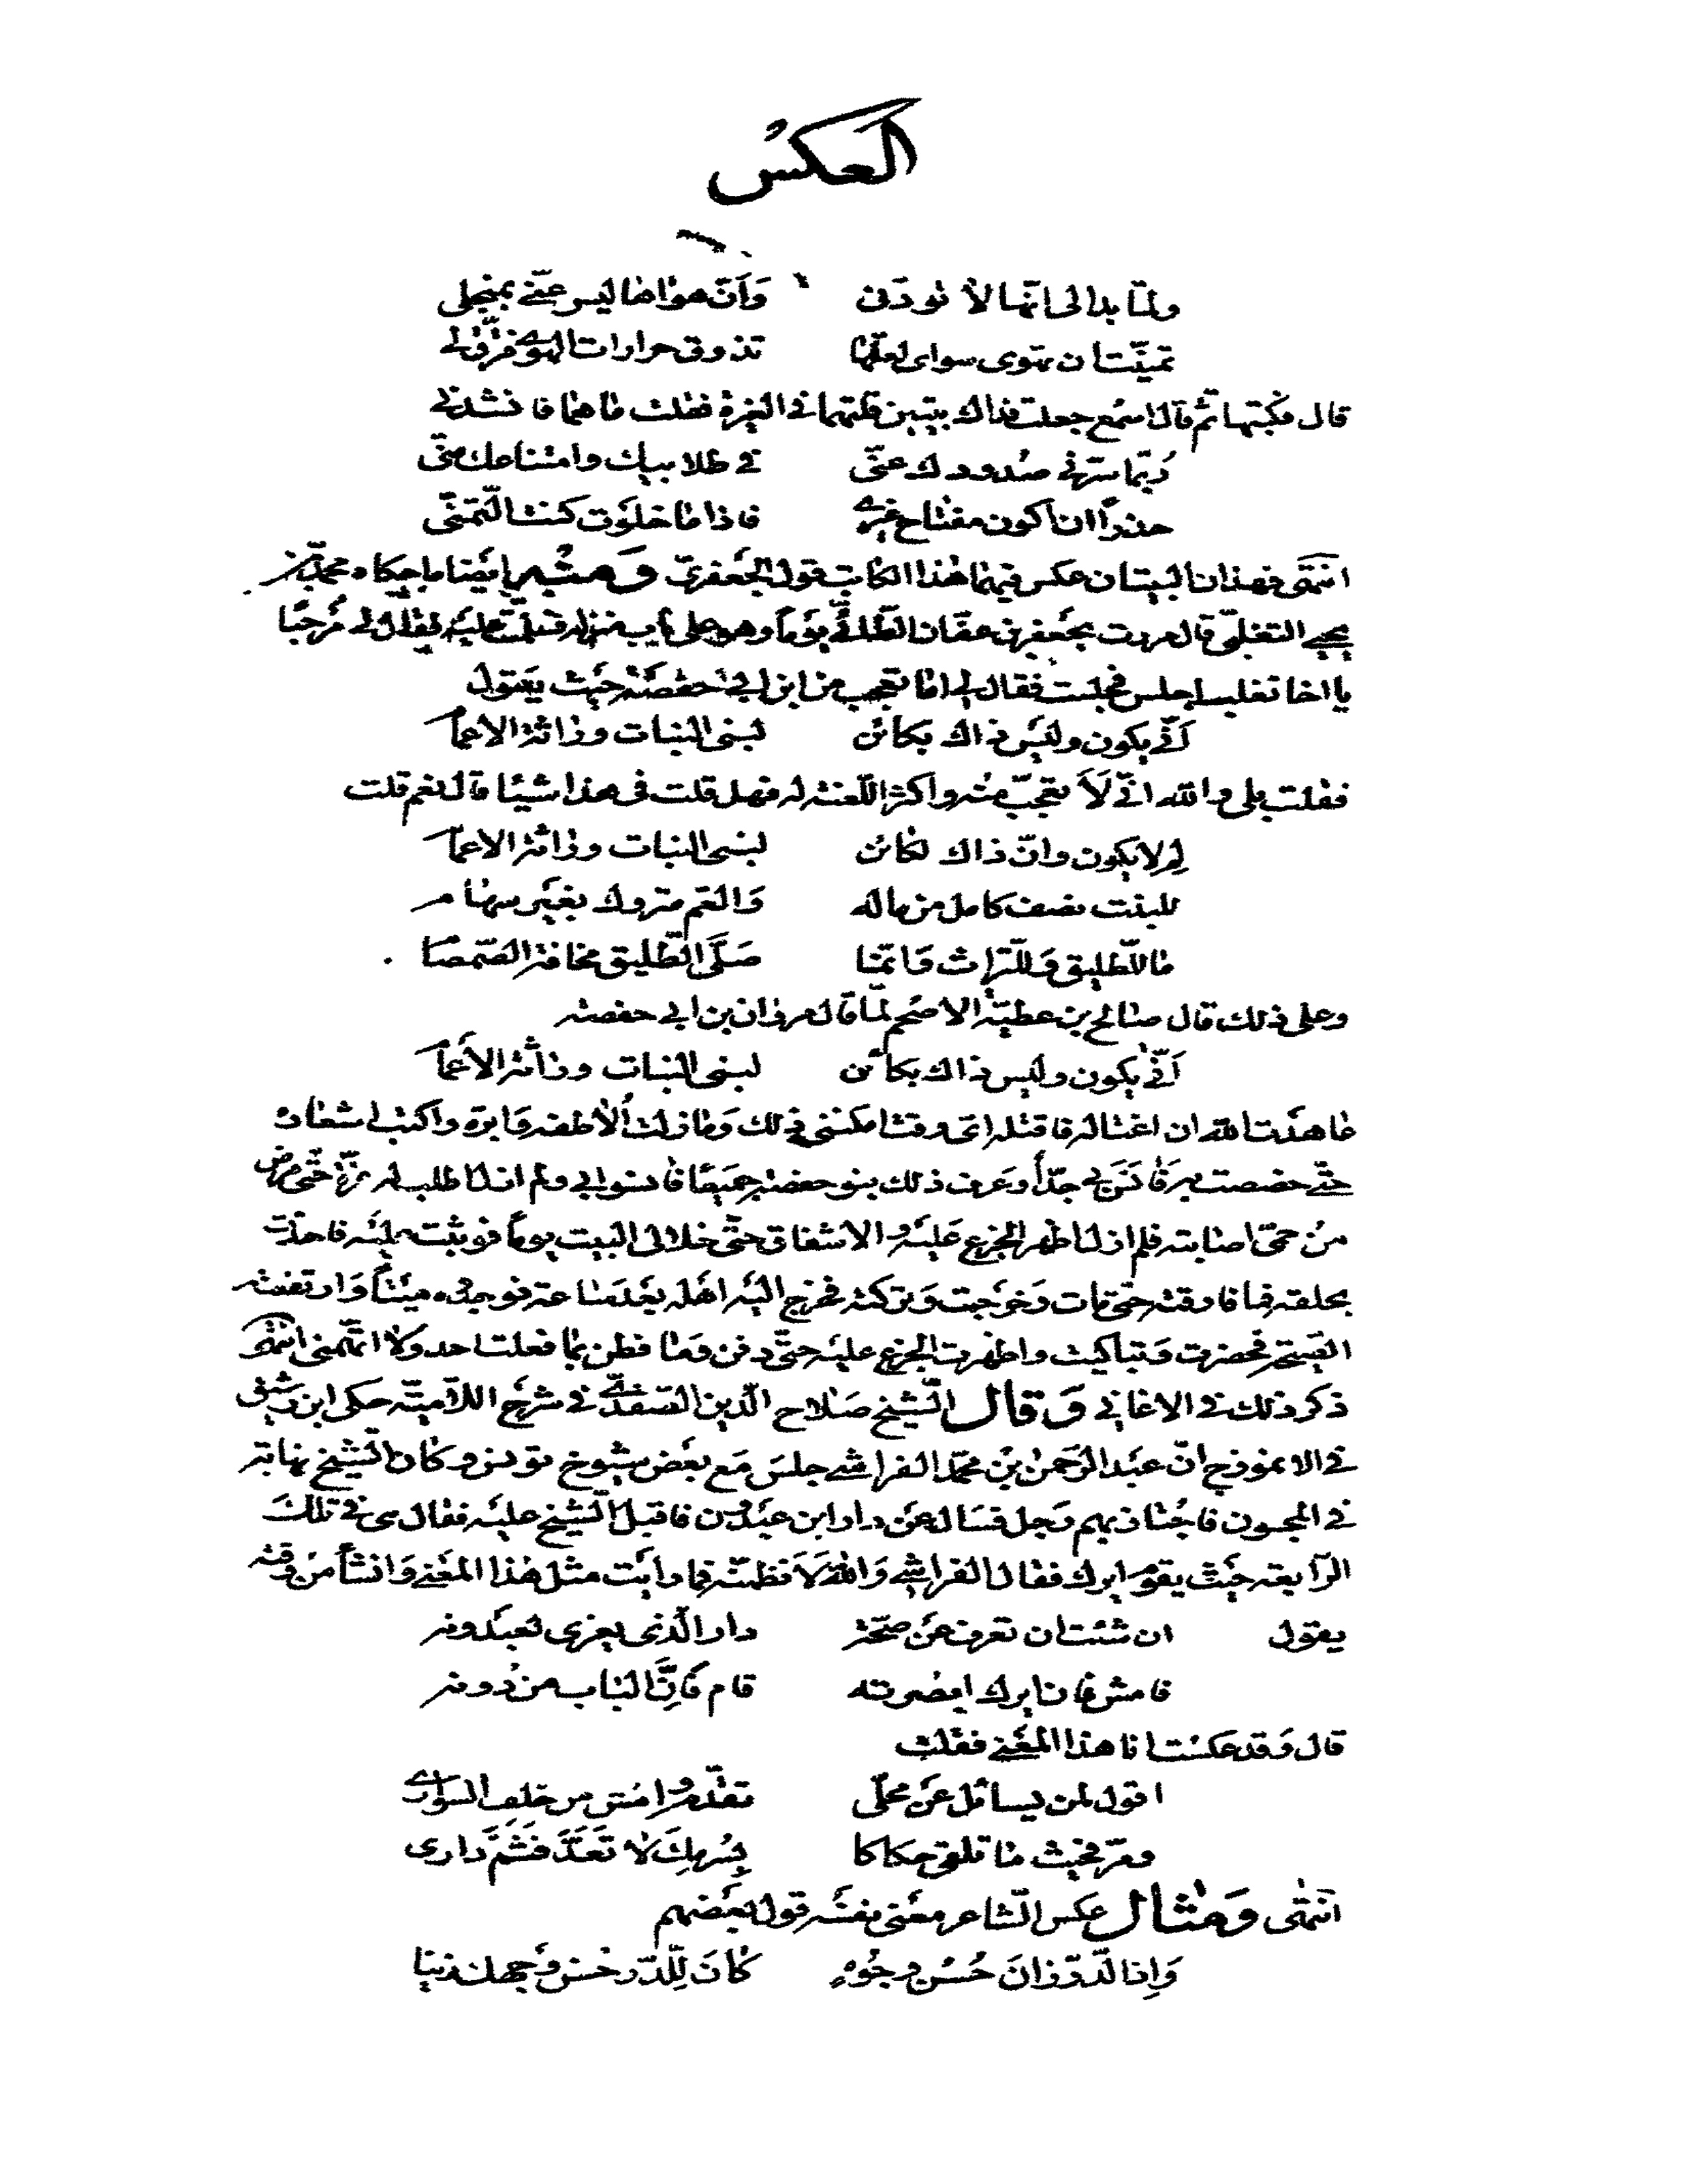 العكس
ولمّا بدا لى انّها لا تودّنى وَانّ هواها ليس عنّي بمنجلى
تمنّيت ان تهوى سواى لعلّها تذوق حرارات الهوى فترقّ لى
قال فكتبتها ثم قال اسمع جعلت فداك بيتين قلتهما في الغيرة فقلت ما هما فانشدنى
رُبّما سرّنى صُدودك عنّى في طلابيك وامتناعك منّى
حذراً ان اكون مفتاح غيرى فاذا ما خلوت كنت التّمنّى
انتهى فهذان البيتان عكس فيهما هذا الكاتب قول الجعفرىّ وَمنه ايضا ما حكاه محمّد بن
يحيى التغلبىّ قال مررت بجعفر بن عفّان الطّائىّ يوماً وهو على باب منزله فسلّمت عليه فقال لى مرحبًا
يا اخا تغلب اجلس فجلست فقال لى اما تعجب من ابن ابي حفصة حيث يقول
اَنّى يكون وليس ذاك بكائن لبنى البنات وراثة الاعمام
فقلت بلى والله انّى لَاَتعجّب منه واكثر اللّعنة له فهل قلت فى هذا شيئا قال نعم قلت
لِم لا يكون وانّ ذاك لكائن لبنى البنات وراثة الاعمام
للبنت نصف كامل من ماله وَالعم متروك بغير سهام
ما للّطليق وَللّتراث وَانّما صَلَّى الطّليق مخافة الصّمصام
وعلى ذلك قال صالح بن عطيّة الاضجم لمّا قال مروان بن ابي حفصة
اَنّى يكون وليس ذاك بكائن لبنى البنات وراثة الاَعمام
عاهدت الله ان اغتاله فاقتله اىّ وقت امكننى ذلك وَما زلت اُلاطفه وَابرّه واكتب اشعاره
حتّى خصصت به فانَس بي جدّاً وعَرف ذلك بنو حفصة جميعًا فانسوا بي ولم ازل اطلب له غرّة حتّى مرض
منْ حمّى اصابته فلم ازل اظهر الجزع عَليه والاشفاق حتّى خلا لى البيت يوماً فوثبت عليه فاخذت
بحلقه فما فارقته حتّى مات وَخرجت وَتركته فخرج اليه اهله بعد ساعة فوجدوه ميّتاً وَارتفعت
الصّيحة فحضرت وَتباكيت واظهرت الجزع عليه حتّى دفن وَما فطن بما فعلت احد وَلا اتّهمنى انتهى
ذكر ذلك فى الاغاني وَقال الشّيخ صَلاح الدّين الصّفدىّ في شرح اللاّميّة حكى ابن رشيق
فى الانموذج انّ عبد الرّحمن بن محمّد الفراسى جلسَ مَع بعض شيوخ تونس وكان الشّيخ نهاية
فى المجون فاجتاز بهم رَجل فسَال عَن دار ابن عبدون فاقبل الشّيخ عليه فقال هى فى تلكَ
الرّابعة حَيث يقوم ايرك فقال الفراسى وَالله لَاَنظمنّه فما رأيت مثل هذا المعنى وَانشأ من وقته
يقول ان شئت ان تعرف عَن صحّة دار الّذى يعزى لعبدونه
فامش فان ايرك ابصرته قام فَانّ الباب من دونه
قال وَقد عكست انا هذا المعنى فقلت
اقول لمن يسائل عَن محلّى تقدّم وامش من خلف السوارى
وَمرّ فحيث ما تلقى حكاكا بِسُرمكَ لا تَعَدَّ فَثَمَّ دارى
انتهى وَمثال عكس الشّاعر معنى نفسه قول بعضهم
وَاِذا الدّرّ زانَ حُسْن وجُوهٍ كانَ لِلّدّر حسْن وَجهك زينا